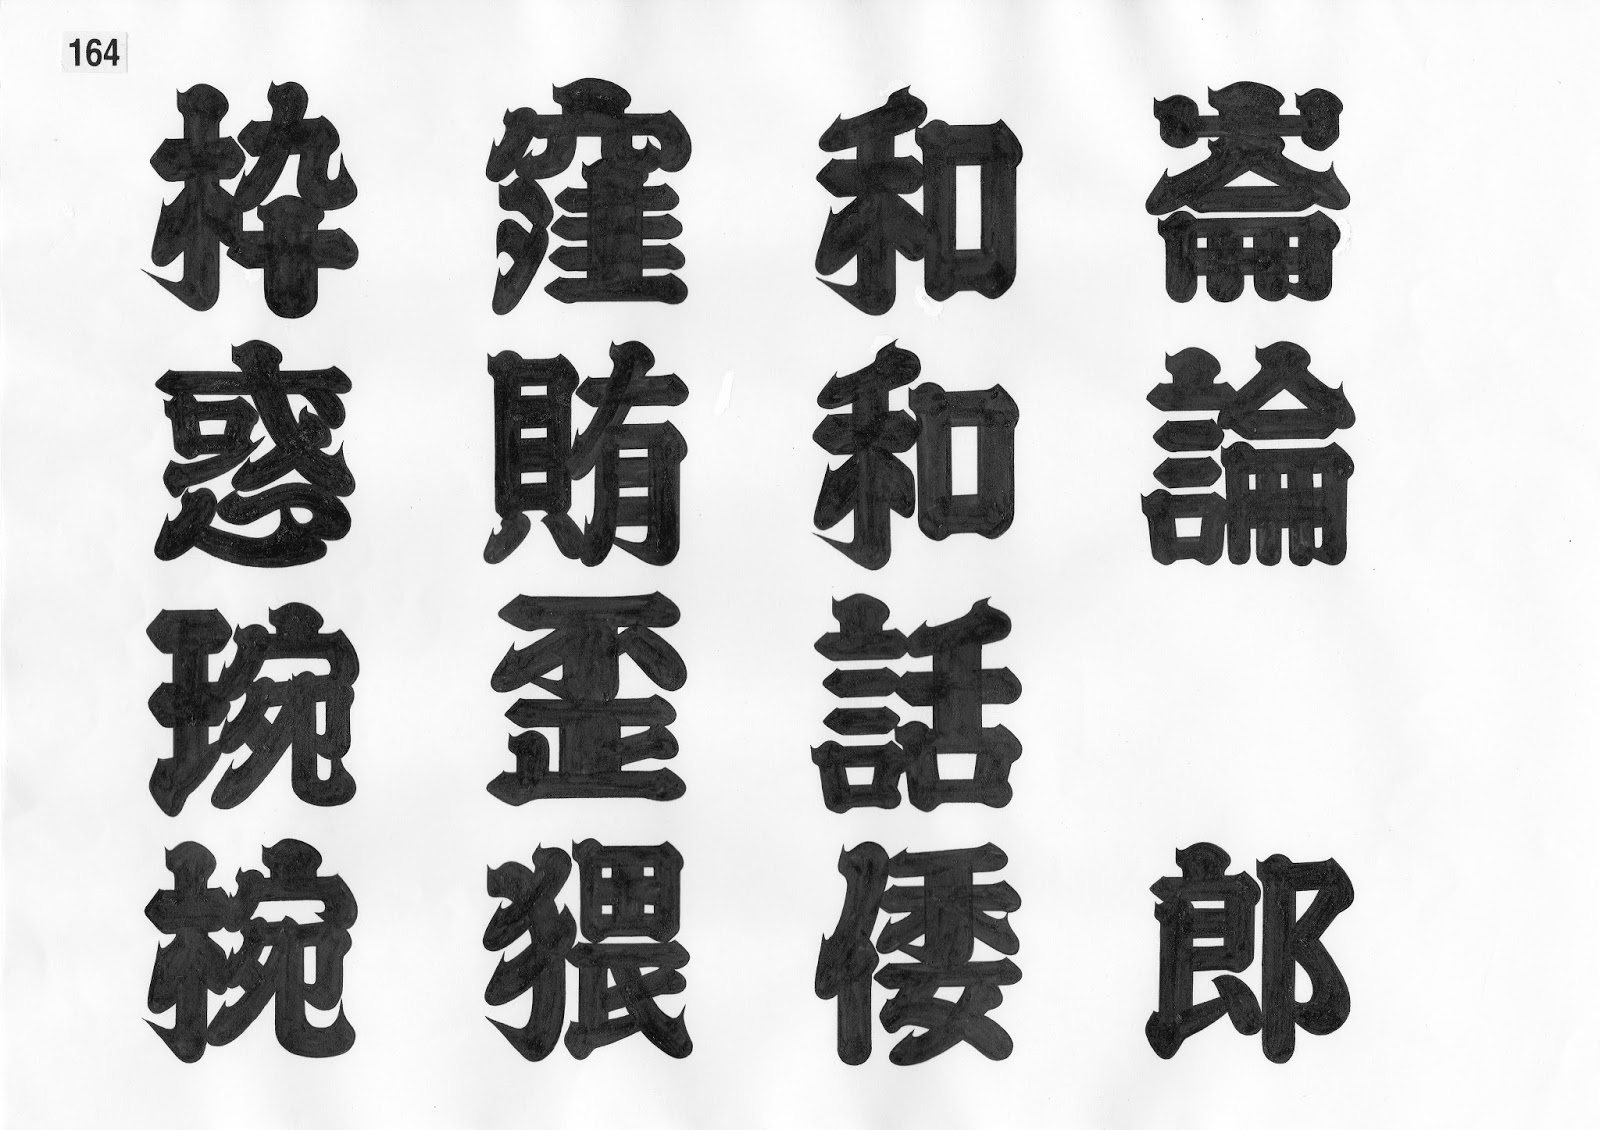 164
崙論
郎
和和話倭
窪賄歪猥
枠惑琬椀